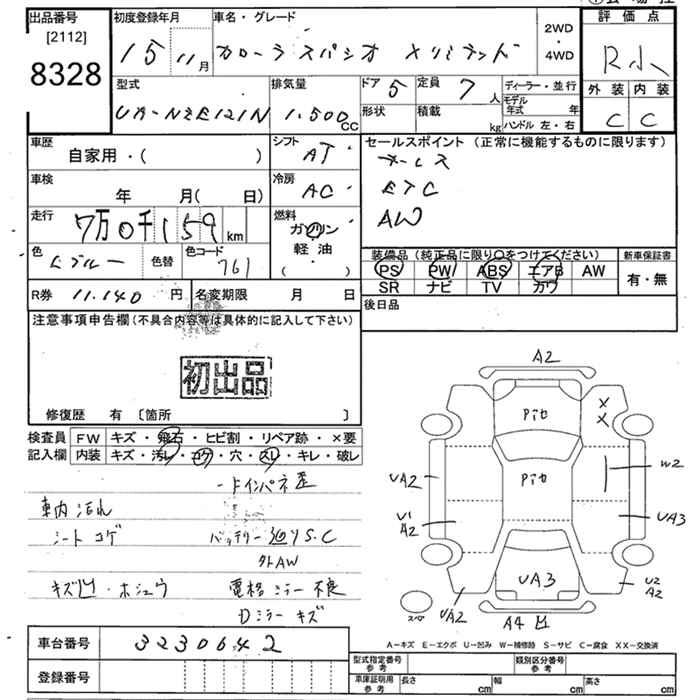 出品番号
[2112]
8328
初度登録年月
15 11月
車名・グレード
カローラ スパシオ Xリミテッド
2WD
・
4WD
評価点
R小
外装 内装
C C
型式
UA-NZE121N
排気量
1.500cc
ドア 5
形状
定員 7人
積載 kg
ディーラー・並行
モデル年式 年
ハンドル 左・右
車歴
自家用・( )
シフト
AT
車検
年 月( 日)
冷房
AC
走行
7万0千159km
燃料
ガソリン
軽油
( )
色
Lブルー
色替
色コード
761
R券 11.140円
名変期限 月 日
セールスポイント (正常に機能するものに限ります)
キーレス
ETC
AW
装備品(純正品に限り○をつけてください)
PS PW ABS エアB AW
SR ナビ TV カワ
新車保証書
有・無
後日品
注意事項申告欄(不具合内容等は具体的に記入して下さい)
初出品
修復歴 有 〔箇所 〕
検査員
記入欄
FW キズ・飛石・ヒビ割・リペア跡・×要
内装 キズ・汚レ・コゲ・穴・スレ・キレ・破レ
インパネ
車内 汚れ
シート コゲ
バッテリー S.C
外AW
キズ凹・ホシュウ
電格ミラー不良
Dミラー キズ
A2
Pセ
X
X
UA2
Pセ
W2
U1
A2
UA3
UA3
U2
A2
スペア
UA2
A4凹
A-キズ E-エクボ U-凹み W-補修跡 S-サビ C-腐食 XX-交換済
車台番号
3230642
登録番号
型式指定番号
参考
類別区分番号
参考
車庫証明用
参考
長さ cm
幅 cm
高さ cm